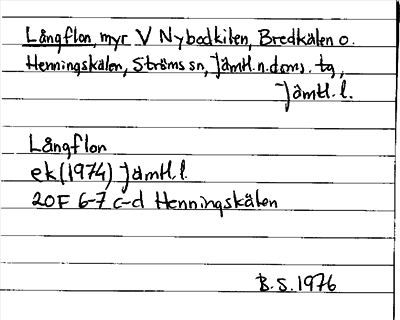 Långflon, myr V Nybodkilen, Bredkälen o.
Henningskälen, Ströms sn, Jämtl.n.doms. tg,
Jämtl. l.
Långflon
ek (1974) Jämtl. l.
20F 6-7 c-d Henningskälen
B.S. 1976